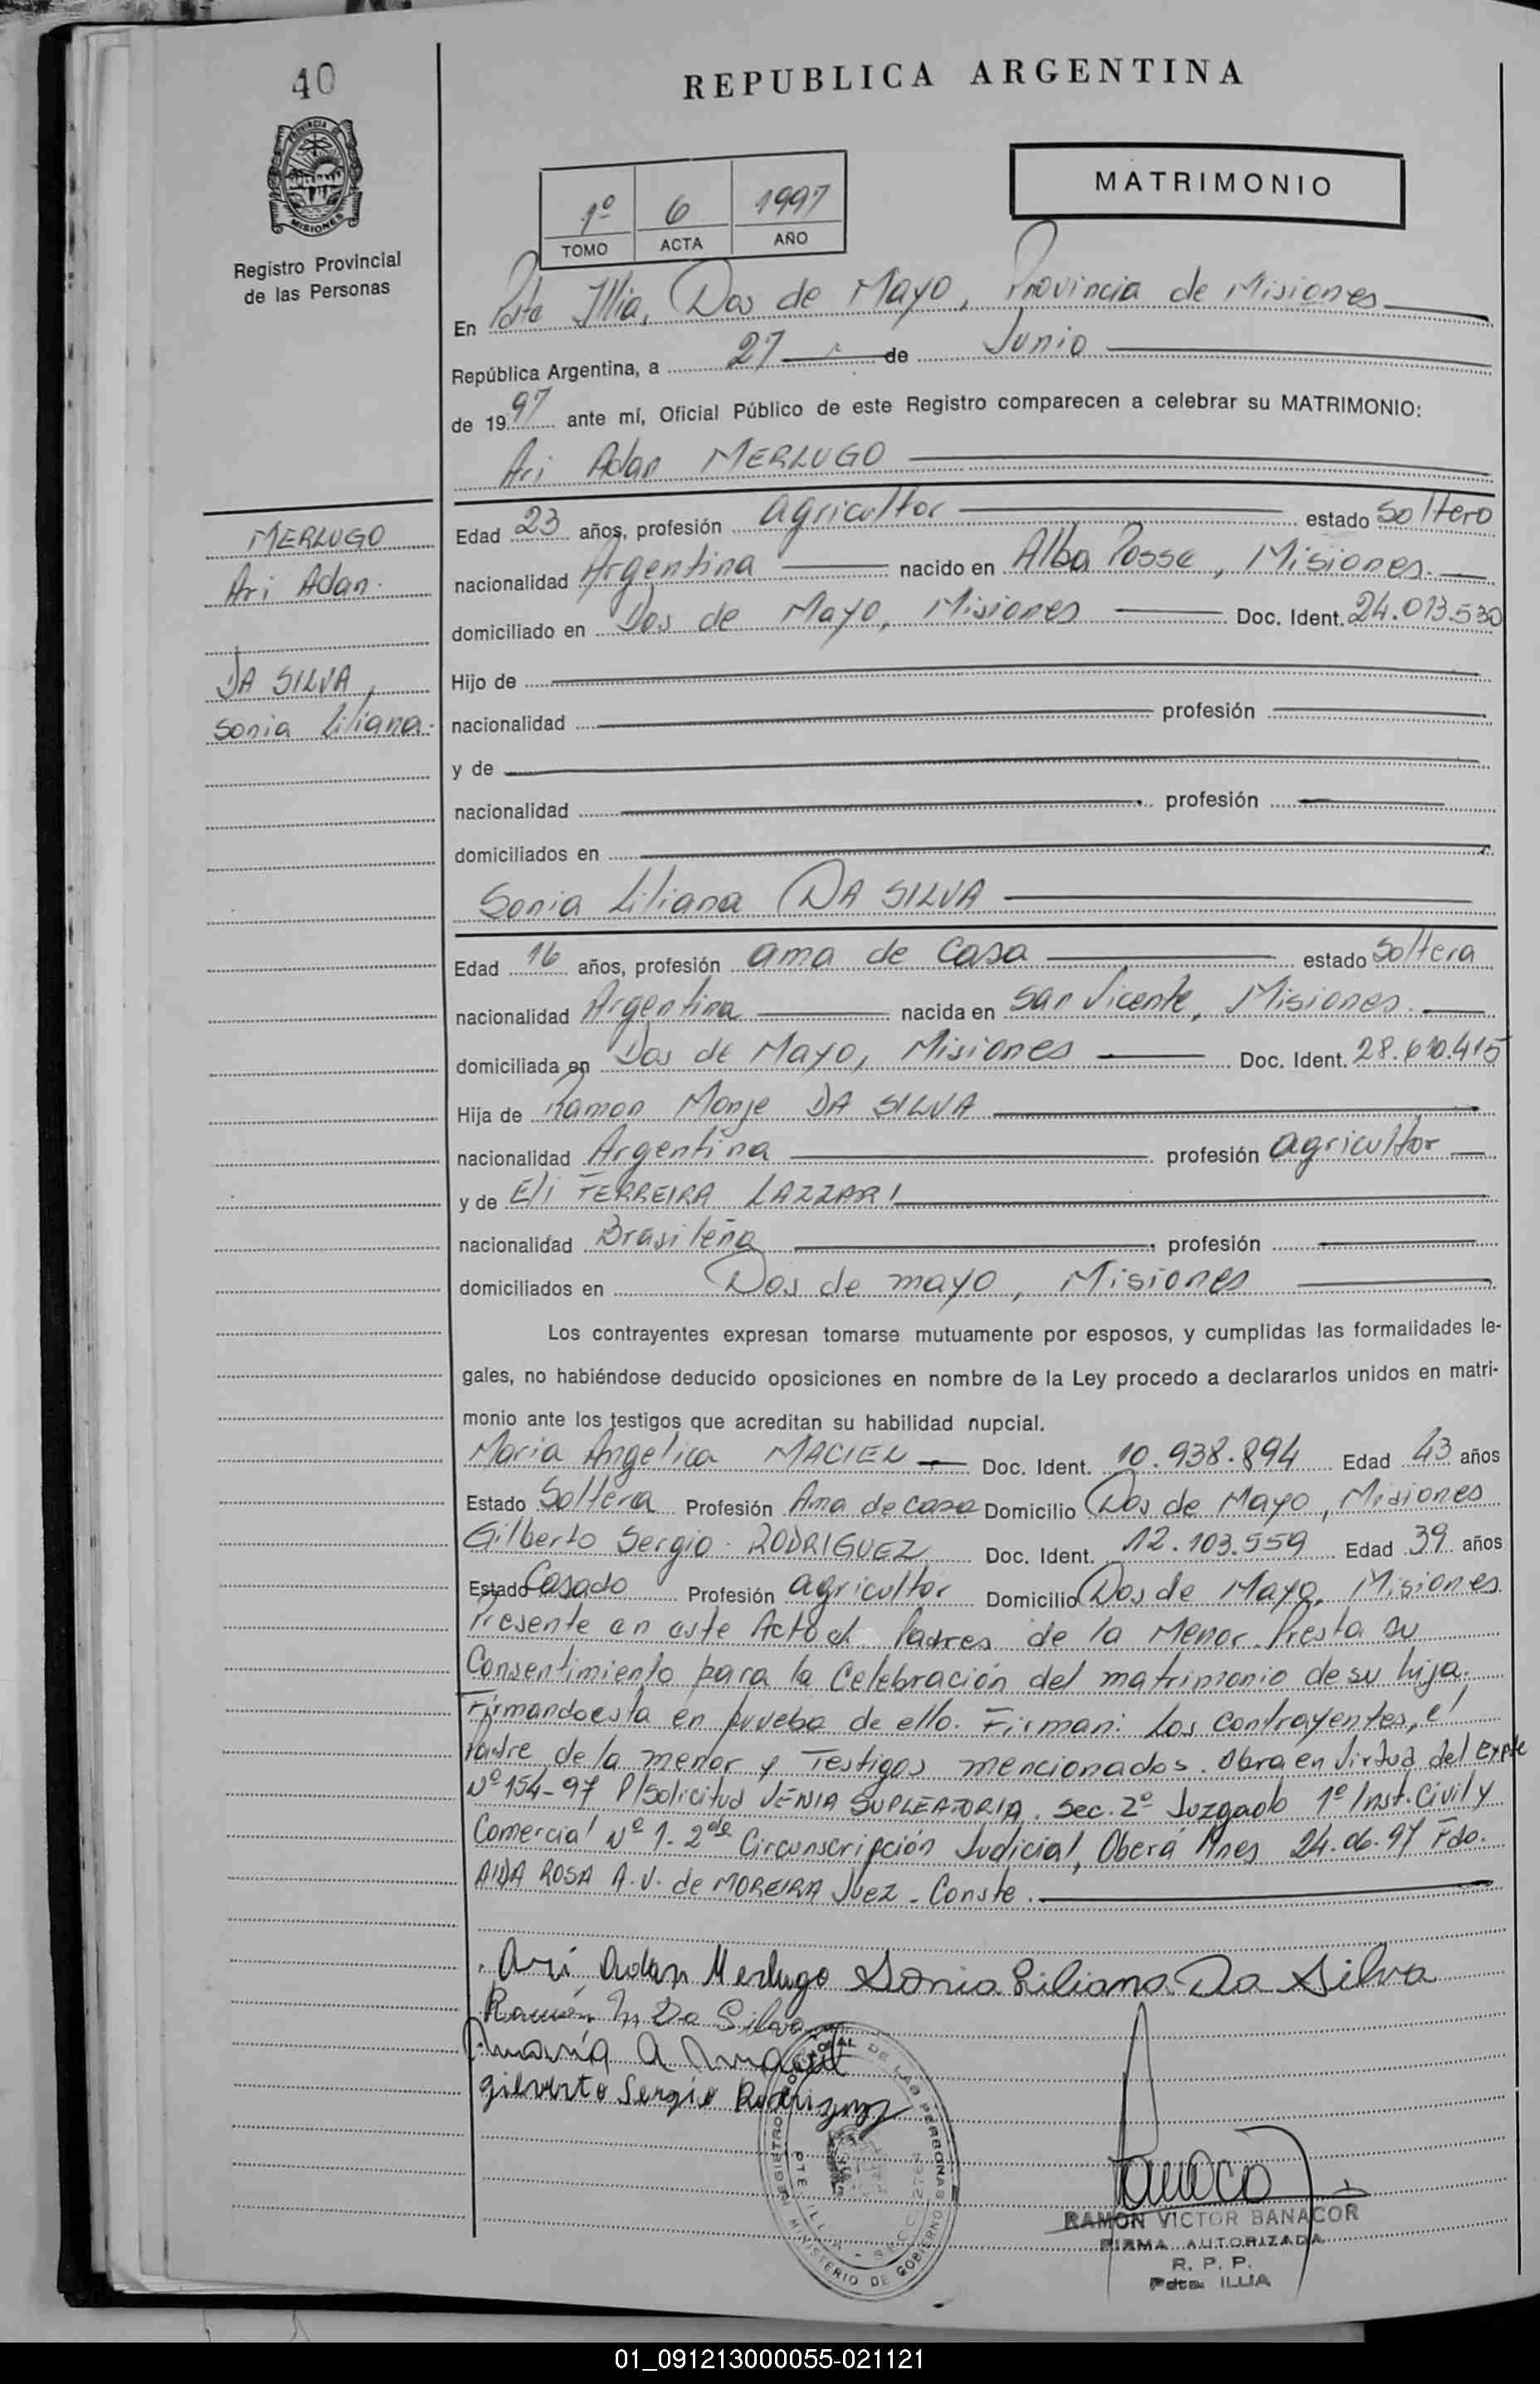 40
REPUBLICA ARGENTINA
PROVINCIA DE
MISIONES
Registro Provincial
de las Personas
1º 6 1997
TOMO ACTA AÑO
MATRIMONIO
En Pdte Illia, Dos de Mayo, Provincia de Misiones
República Argentina, a 27 de Junio
de 1997 ante mí, Oficial Público de este Registro comparecen a celebrar su MATRIMONIO:
Ari Adan MERLUGO
MERLUGO
Ari Adan.
DA SILVA,
Sonia Liliana.
Edad 23 años, profesión agricultor estado Soltero
nacionalidad Argentina nacido en Alba Posse, Misiones.
domiciliado en Dos de Mayo, Misiones Doc. Ident. 24.013.530
Hijo de
nacionalidad profesión
y de
nacionalidad profesión
domiciliados en
Sonia Liliana DA SILVA
Edad 16 años, profesión ama de casa estado Soltera
nacionalidad Argentina nacida en San Vicente, Misiones.
domiciliada en Dos de Mayo, Misiones Doc. Ident. 28.610.415
Hija de Ramon Monje DA SILVA
nacionalidad Argentina profesión agricultor
y de Eli FERREIRA LAZZARI
nacionalidad Brasileña profesión
domiciliados en Dos de mayo, Misiones
Los contrayentes expresan tomarse mutuamente por esposos, y cumplidas las formalidades le-
gales, no habiéndose deducido oposiciones en nombre de la Ley procedo a declararlos unidos en matri-
monio ante los testigos que acreditan su habilidad nupcial.
Maria Angelica MACIEL Doc. Ident. 10.938.894 Edad 43 años
Estado Soltera Profesión Ama de casa Domicilio Dos de Mayo, Misiones
Gilberto Sergio RODRIGUEZ Doc. Ident. 12.103.559 Edad 39 años
Estado Casado Profesión agricultor Domicilio Dos de Mayo, Misiones
Presente en este Acto el Padres de la Menor Presta su
Consentimiento para la Celebración del matrimonio de su hija.
Firmando esta en prueba de ello. Firman: Los contrayentes, el
Padre de la menor y Testigos mencionados. Obra en Virtud del Expte
Nº 154-97 P/Solicitud VENIA SUPLEATORIA. Sec. 2º Juzgado 1º Inst. Civil y
Comercial Nº 1. 2da Circunscripción Judicial, Oberá Mnes 24.06.97 Fdo.
AIDA ROSA A.V. de MOREIRA Juez - Conste.
Ari Adan Merlugo Sonia Liliana Da Silva
Ramón M Da Silva
María A Maciel
Gilverto Sergio Rodriguez
REGISTRO PROVINCIAL DE LAS PERSONAS
MINISTERIO DE GOBIERNO
RAMON VICTOR BANACOR
FIRMA AUTORIZADA
R. P. P.
Pdte. ILLIA
01_091213000055-021121